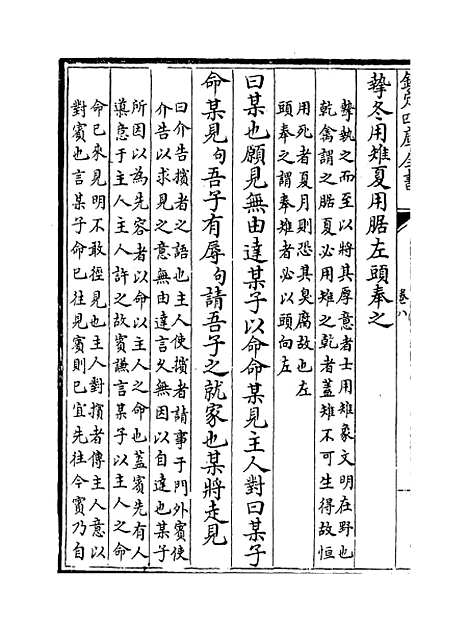 欽定四庫全書
卷八
摯冬用雉夏用腒左頭奉之
摯執之而至以將其厚意者士用雉象文明在野也
乾禽謂之腒夏必用雉之乾者蓋雉不可生得故恒
用死者夏月則恐其臭腐故也左
頭奉之謂奉雉者必以頭向左
曰某也願見無由達某子以命命某見主人對曰某子
命某見句吾子有辱句請吾子之就家也某將走見
曰介告擯者之語也主人使擯者請事于門外賓使
介告以求見之意無由達言久無因以自達也某子
所因以為先容者以命以主人之命也蓋賓先有人
達意于主人主人許之故賓謙言某子以主人之命
命已來見明不敢徑見也主人對擯者傳主人意以
對賓也言某子命已往見賓則已宜先往今賓乃自